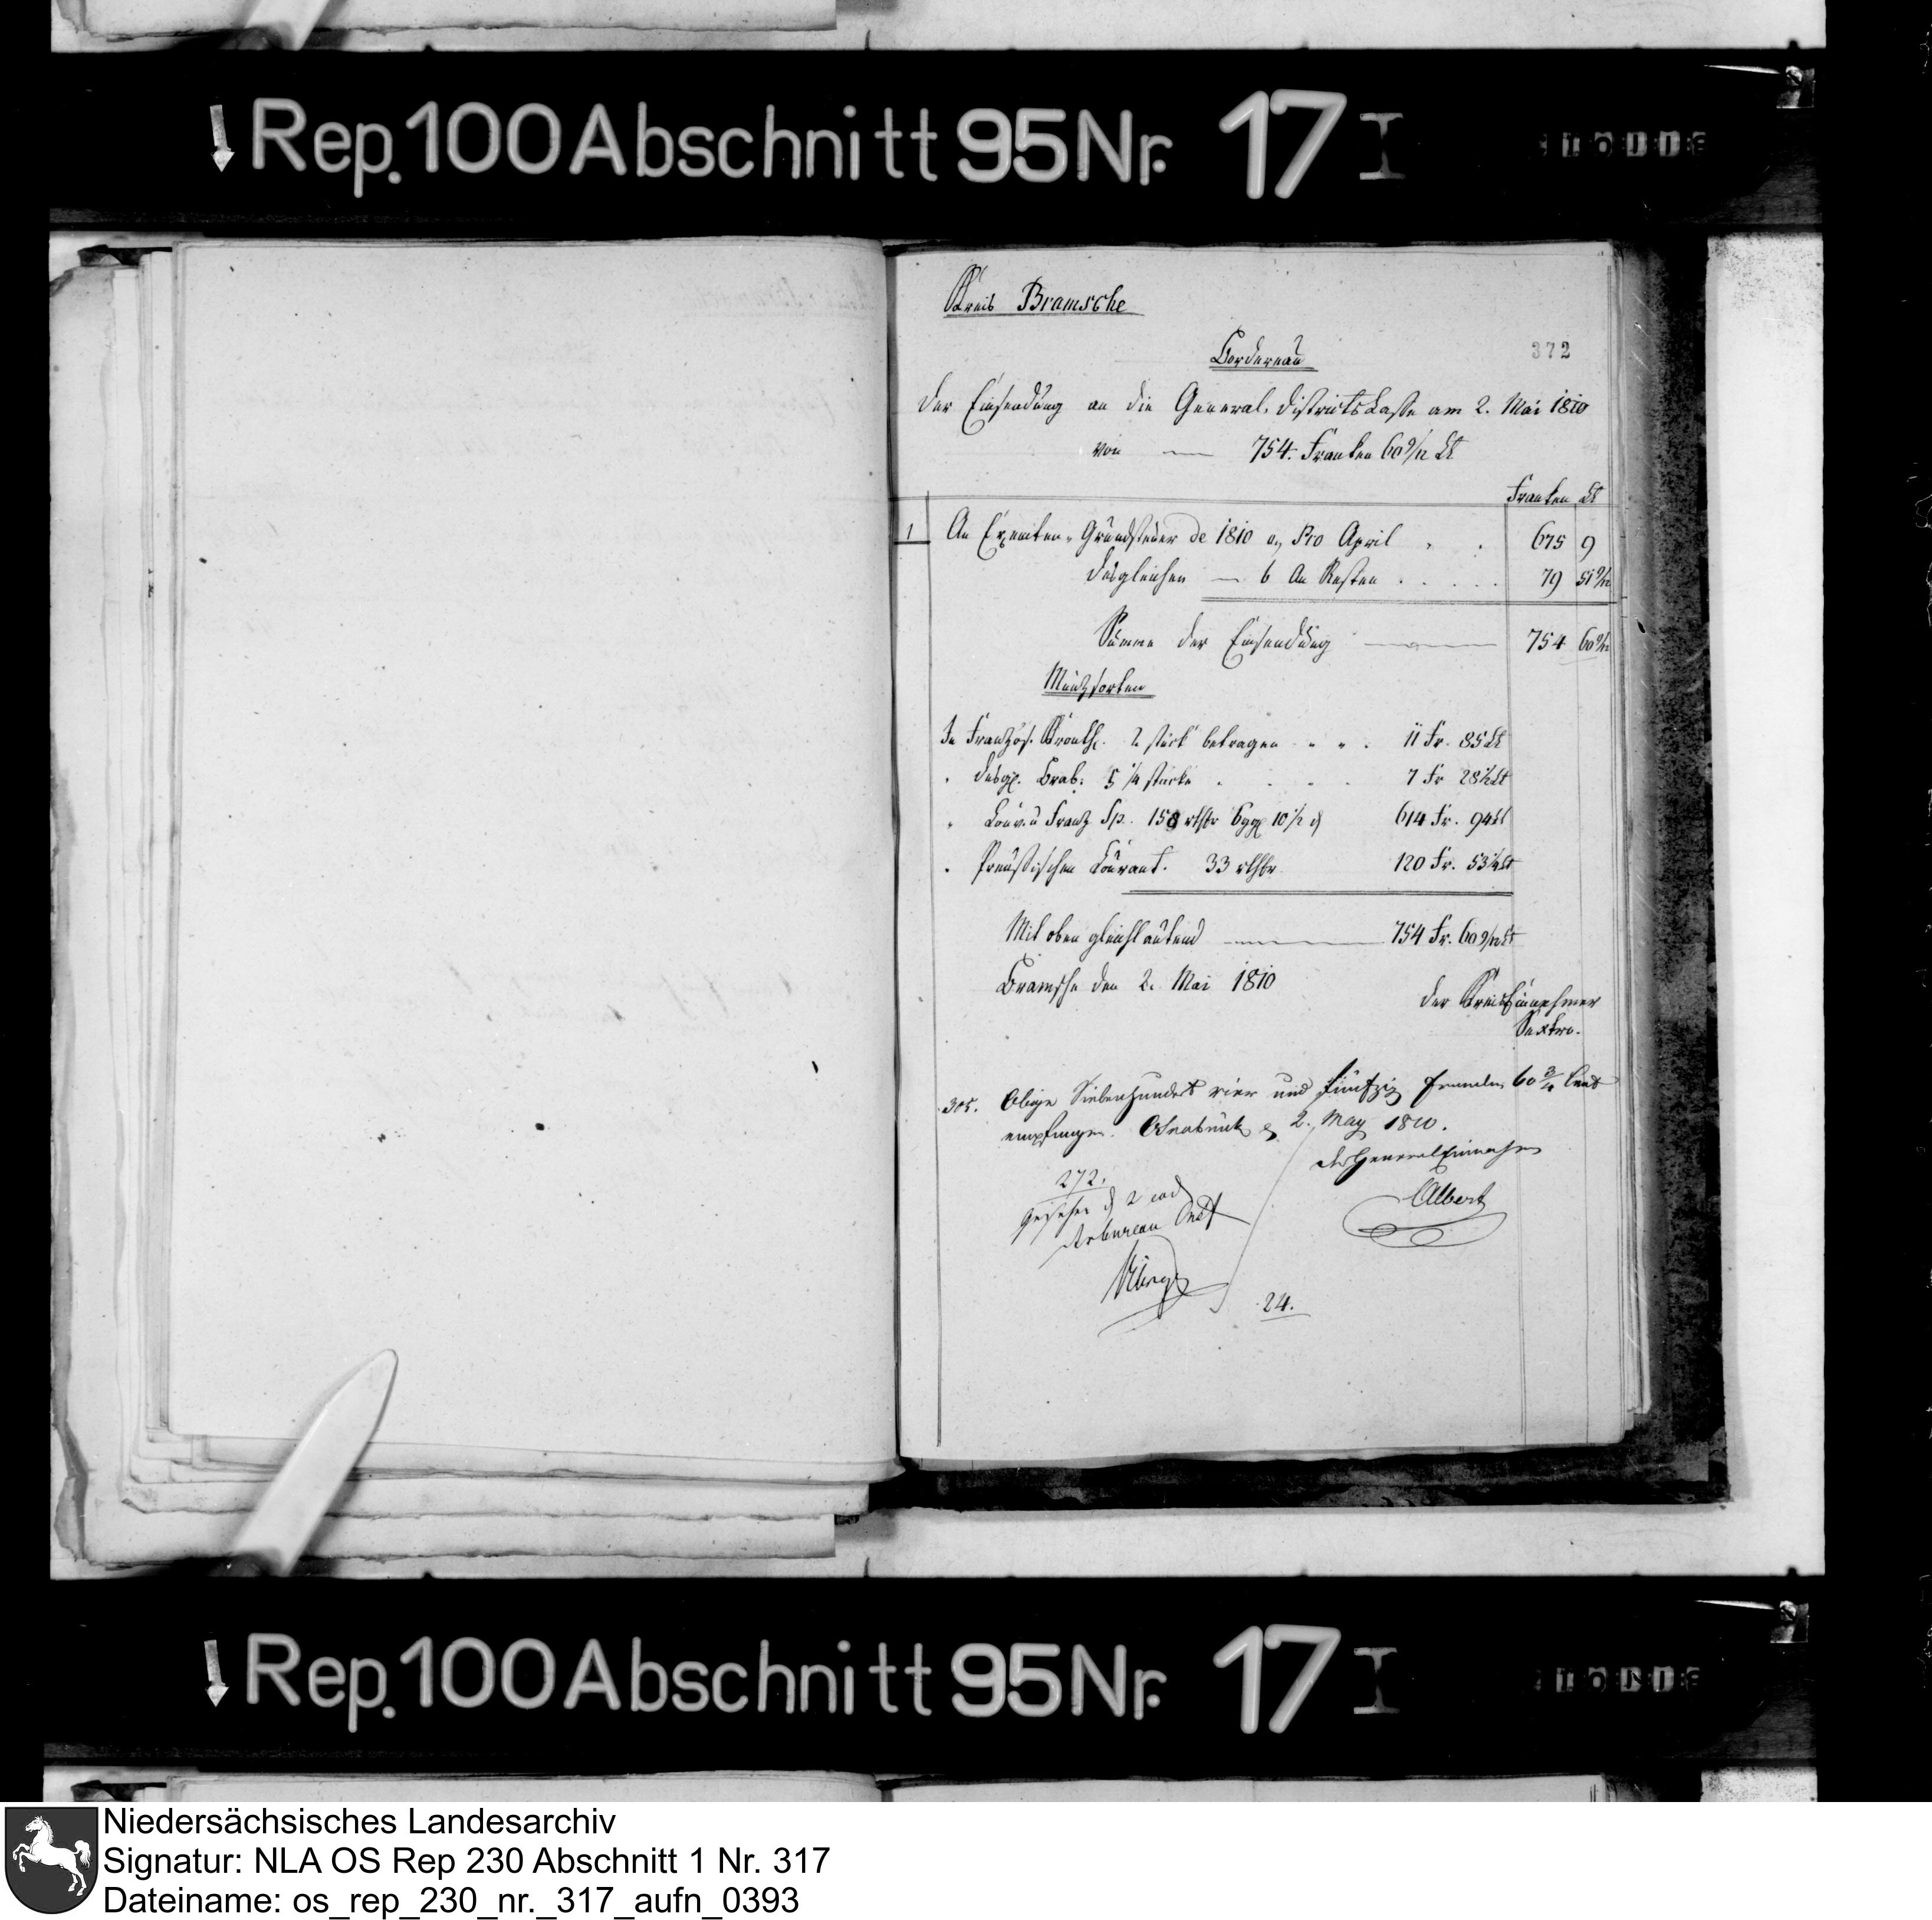 Rep. 100 Abschnitt 95 Nr. 17 I
Kreis Bramsche
372
Bordereau
der Einsendung an die General-Districts Casse am 2. Mai 1810
von 754. Franken 60 9/12 Ct
Franken Ct
1 An Exemten-Grundsteuer de 1810 a, Pro April 675 9
desgleichen b An Resten 79 51 9/12
Summe der Einsendung 754 60 9/12
Müntzsorten
In Französ. Kronth. 2 stück betragen 11 Fr. 85 Ct
desgl. Brab: 5 1/4 stücke 7 Fr 28 1/2 Ct
Louis. u Franz Sp. 158 rthlr 6 ggl 10 1/2 d 614 Fr. 94 Ct
Preußischen Courant. 33 rthlr 120 Fr. 53 1/4 Ct
Mit oben gleichlautend 754 Fr. 60 9/12 Ct
Bramsche den 2. Mai 1810
der Kreis Einnehmer
Sextro.
305. Obige Siebenhundert vier und fünfzig Franken 60 3/4 Cent
empfangen. Osnabrück d 2. May 1810.
der General Einnehmer
Albert
272.
Gesehen d 2 eod
24.
Rep. 100 Abschnitt 95 Nr. 17 I
Niedersächsisches Landesarchiv
Signatur: NLA OS Rep 230 Abschnitt 1 Nr. 317
Dateiname: os_rep_230_nr._317_aufn_0393